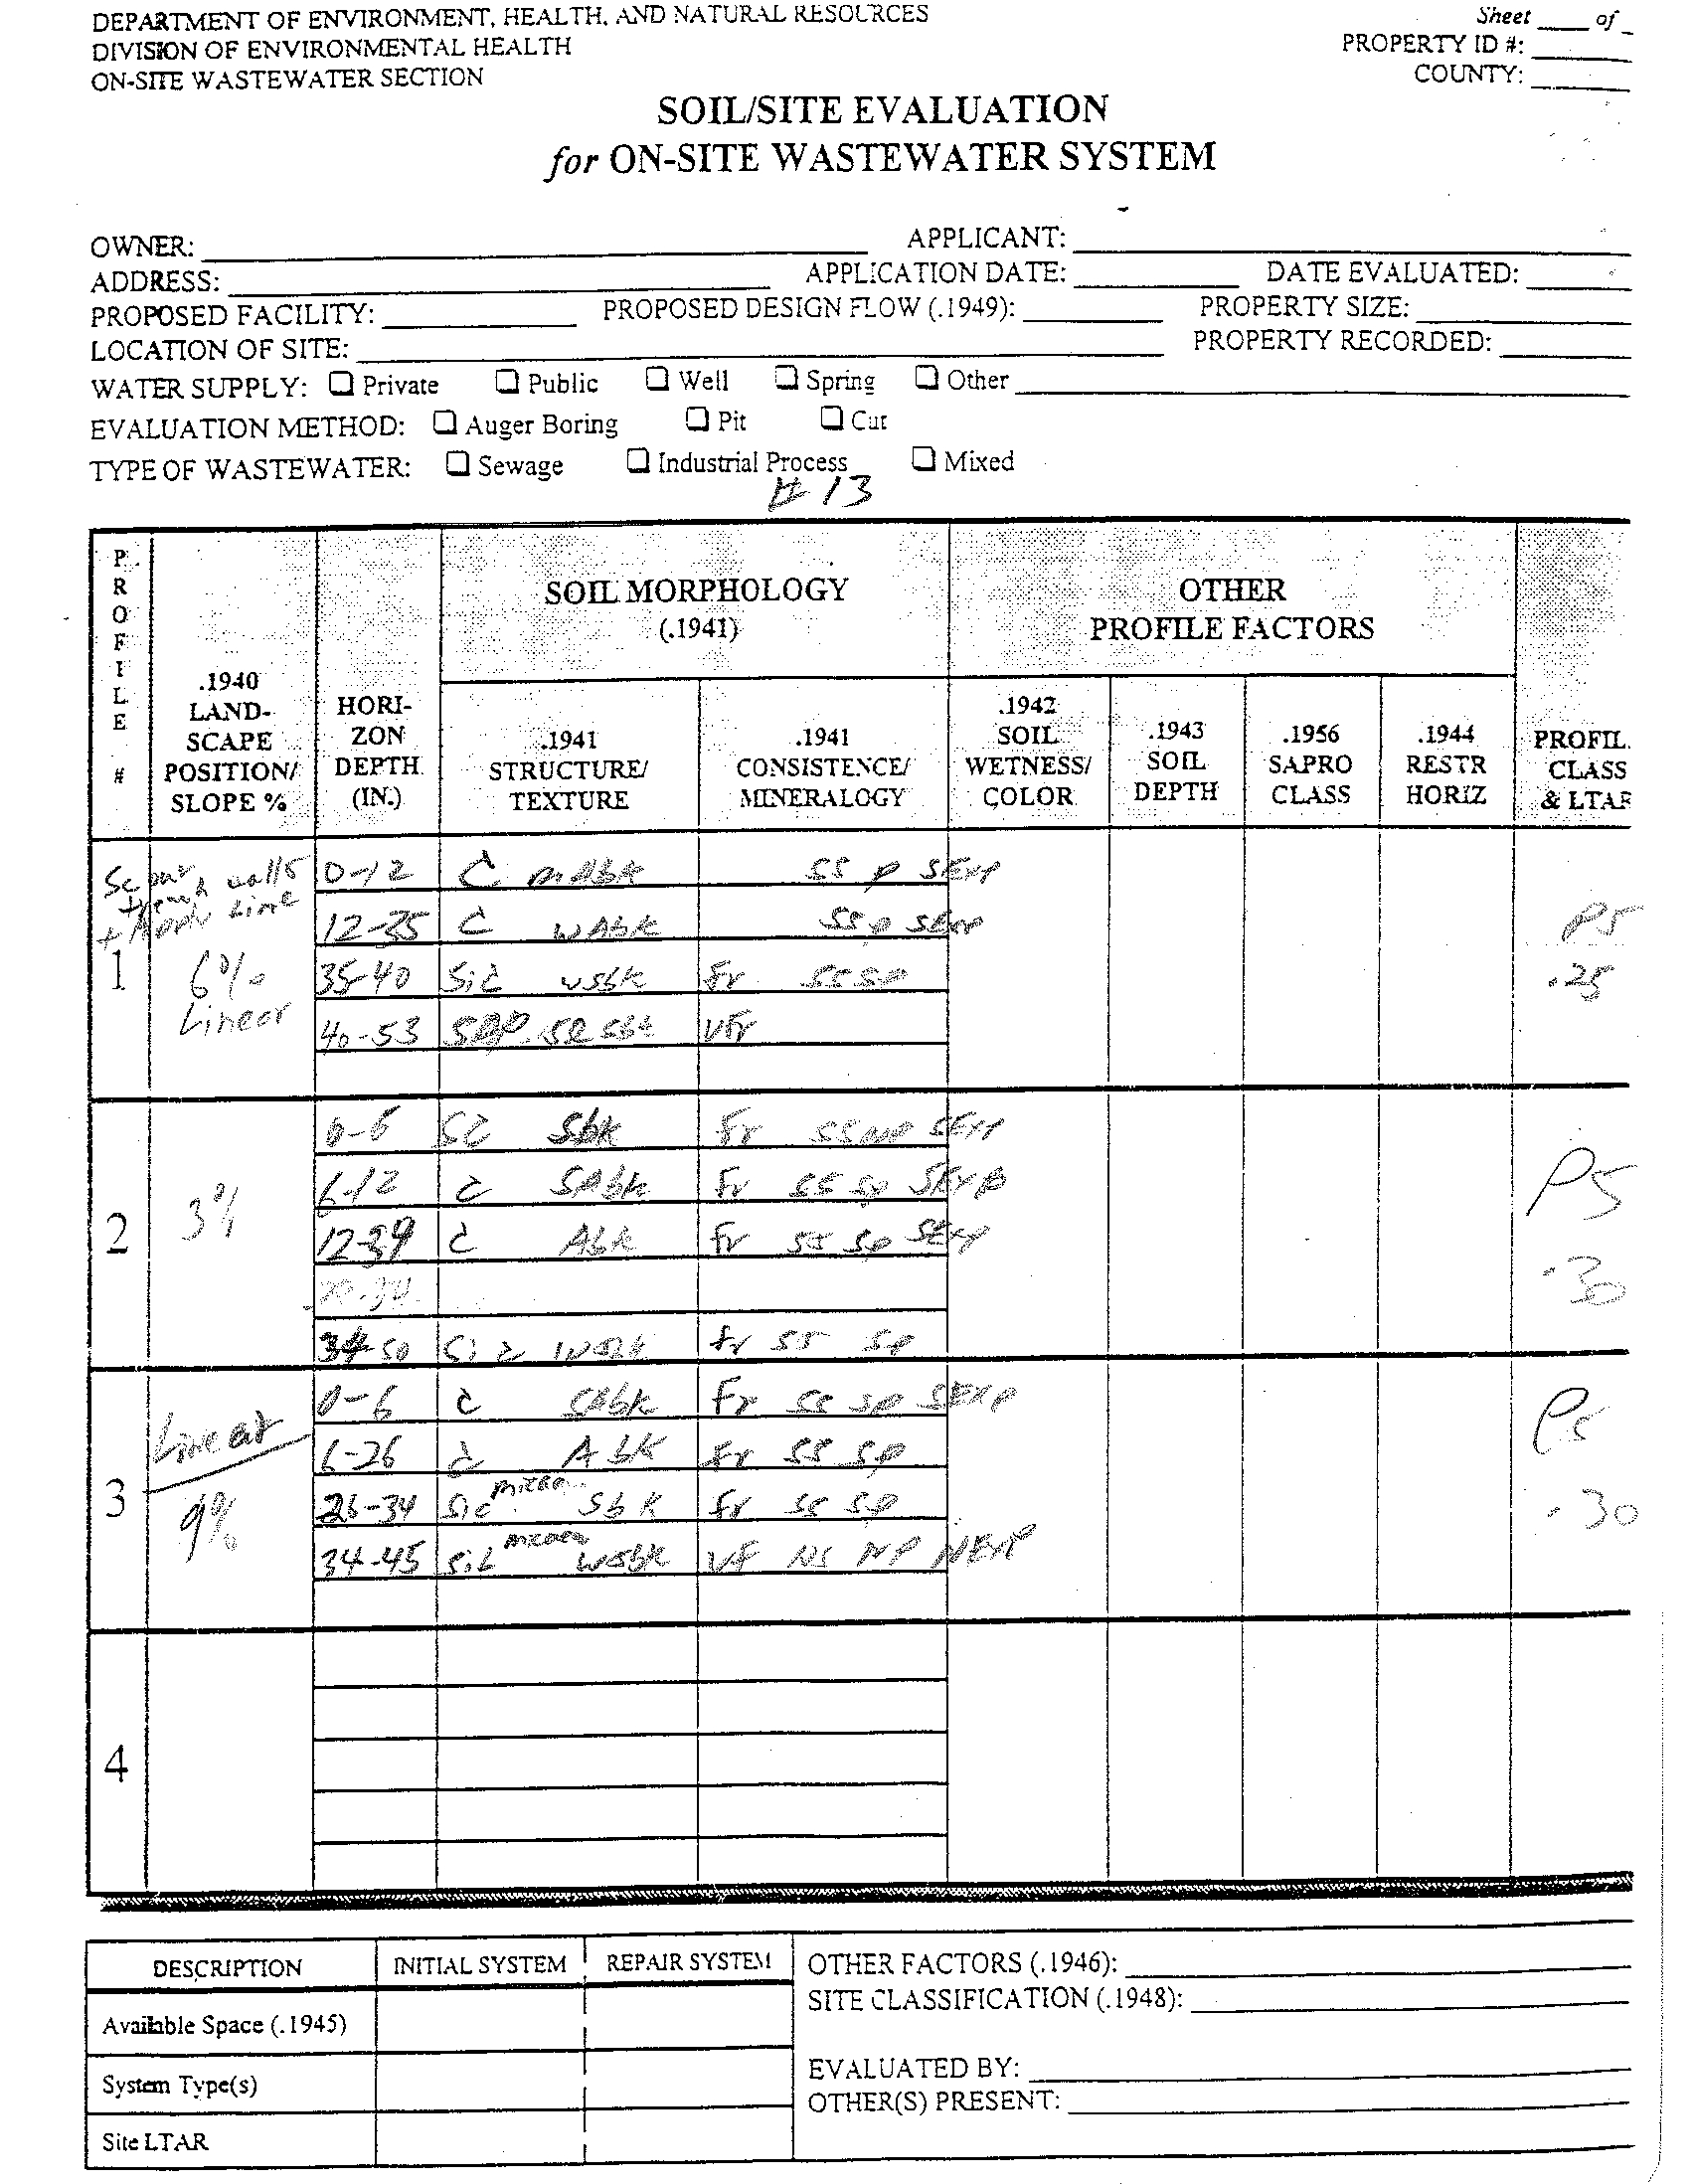 DEPARTMENT OF ENVIRONMENT, HEALTH, AND NATURAL RESOURCES
Sheet ____ of _
DIVISION OF ENVIRONMENTAL HEALTH
PROPERTY ID #:
ON-SITE WASTEWATER SECTION
COUNTY:
SOIL/SITE EVALUATION
for ON-SITE WASTEWATER SYSTEM
OWNER: APPLICANT:
ADDRESS: APPLICATION DATE: DATE EVALUATED:
PROPOSED FACILITY: PROPOSED DESIGN FLOW (.1949): PROPERTY SIZE:
LOCATION OF SITE: PROPERTY RECORDED:
WATER SUPPLY: ❑ Private ❑ Public ❑ Well ❑ Spring ❑ Other
EVALUATION METHOD: ❑ Auger Boring ❑ Pit ❑ Cut
TYPE OF WASTEWATER: ❑ Sewage ❑ Industrial Process ❑ Mixed
# 13
PROFILE #
.1940 LAND-SCAPE POSITION/ SLOPE %
HORI-ZON DEPTH (IN.)
SOIL MORPHOLOGY (.1941)
OTHER PROFILE FACTORS
.1941 STRUCTURE/ TEXTURE
.1941 CONSISTENCE/ MINERALOGY
.1942 SOIL WETNESS/ COLOR
.1943 SOIL DEPTH
.1956 SAPRO CLASS
.1944 RESTR HORIZ
PROFIL. CLASS & LTAR
1
Scour trench walls
+ Apply Lime
6%
Linear
0-12 C mAbk SS P SExp
12-35 C wAbk SS P SExp
35-40 SiC wsbk Fr SS SP
40-53 SAP sbk VFr
PS
.25
2
3%
0-6 sbk Fr SS NP SExp
6-12 C SAbk Fr SS SP SExp
12-39 C Abk Fr SS SP SExp
34-50 Fr SS SP
PS
.30
3
Linear
9%
0-6 C SAbk Fr SS SP SExp
6-26 C Abk Fr SS SP
26-34 SiC micro Sbk Fr SS SP
34-45 SiL wsbk VF NS NP NExp
PS
.30
4
DESCRIPTION INITIAL SYSTEM REPAIR SYSTEM
Available Space (.1945)
System Type(s)
Site LTAR
OTHER FACTORS (.1946):
SITE CLASSIFICATION (.1948):
EVALUATED BY:
OTHER(S) PRESENT: